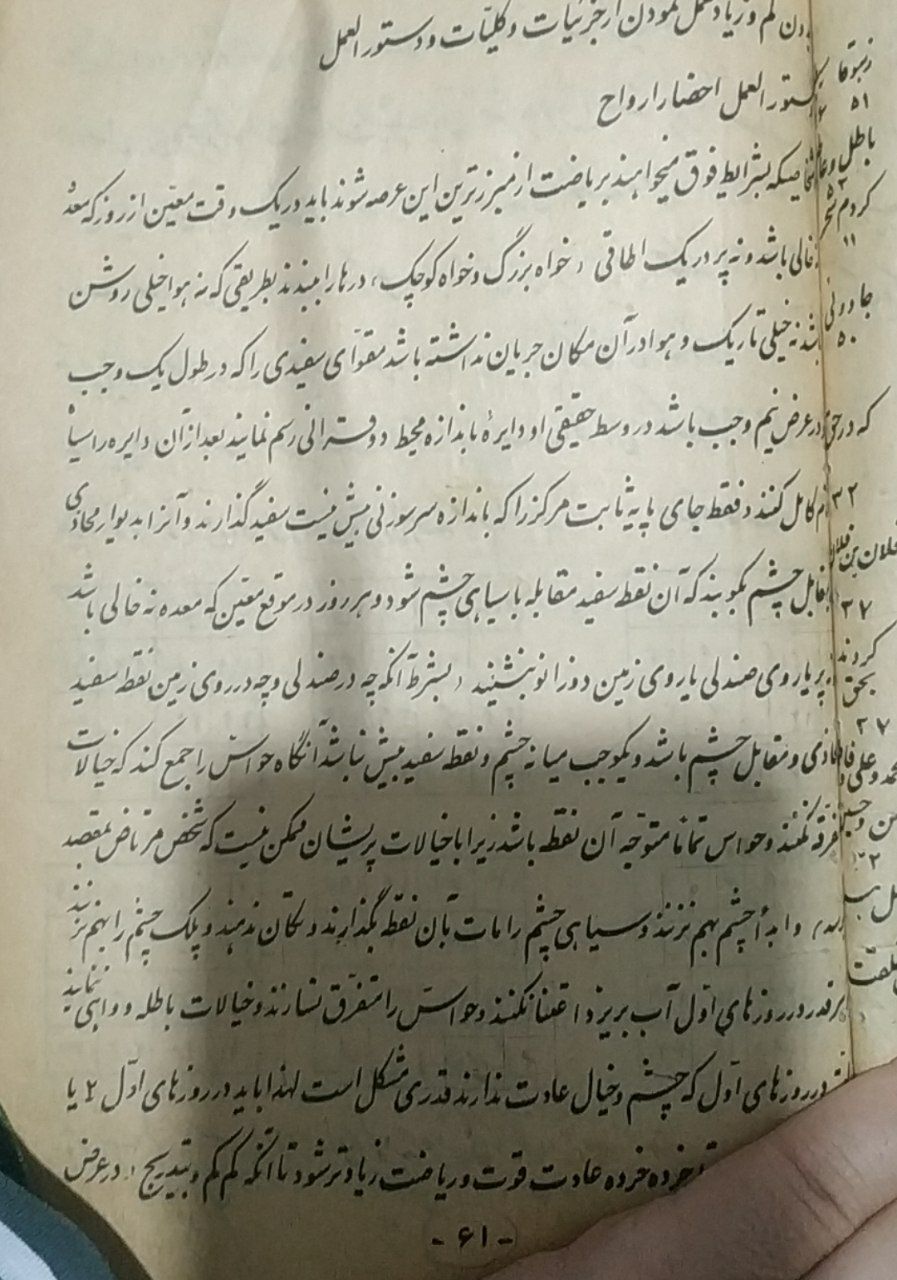 کم و زیاد عمل نمودن از جزئیات و کلیّات و دستور العمل
دستور العمل احضار ارواح
بشرایط فوق میخواهند بریاضت از مبرزترین این عرصه شوند باید در یک وقت معیّن از روز که معدهٔ
خالی باشد و نه پر در یک اطاقی ، خواه بزرگ و خواه کوچک ، درها را ببندند بطریقی که نه هوا خیلی روشن
باشد نه خیلی تاریک و هوا در آن مکان جریان نداشته باشد مقوّای سفیدی را که در طول یک وجب
در عرض نیم وجب باشد در وسط حقیقی او دایرهٔ باندازه محیط دو قرانی رسم نمایند بعد از آن دایره را سیاه
کامل کنند و فقط جای پایه ثابت مرکز را که باندازه سر سوزنی بیش نیست سفید گذارند و آنرا بدیوار محاذی
مقابل چشم بکوبند که آن نقط سفید مقابله با سیاهی چشم شود و هر روز در موقع معیّن که معده نه خالی باشد
پر یا روی صندلی یا روی زمین دو زانو بنشینید ، بشرط آنکه چه در صندلی و چه در روی زمین نقطه سفید
محاذی و مقابل چشم باشد و یکوجب میانه چشم و نقطه سفید بیش نباشد آنگاه حواسّ را جمع کند که خیالات
نکنند و حواس تماماً متوجّه آن نقطه باشد زیرا با خیالات پریشان ممکن نیست که شخص مرتاض بمقصد
و ابداً چشم بهم نزنند و سیاهی چشم را مات بآن نقطه بگذارند و تکان ندهند و پلک چشم را بهم نزنند
هر قدر در روزهای اوّل آب بریزد اعتنا نکنند و حواسّ را متفرّق نسازند و خیالات باطله و واهی ننمایند
در روزهای اوّل که چشم و خیال عادت ندارند قدری مشکل است لهذا باید در روزهای اوّل ۲ یا
خرده خرده عادت قوت و ریاضت زیادتر شود تا آنکه کم کم و بتدریج ، در عرض
- ۶۱ -
۵۱
باطل و
کردم
۱۱
۵۰
که در
۳۲
فلان بن فلان
۳۷
کردند
بحق
۲۷